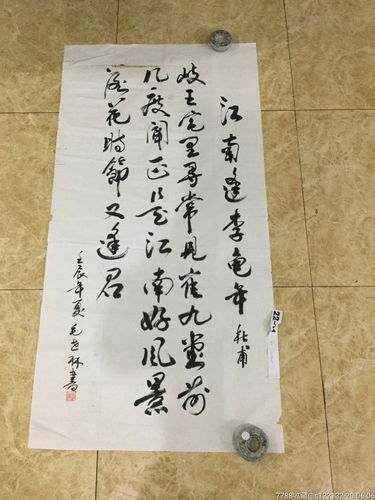 江南逢李亀年 杜甫
岐王宅里尋常見崔九堂前
几度聞正是江南好風景
落花時節又逢君
壬辰年夏 毛世林書
7788收藏@s122132/20.06.06